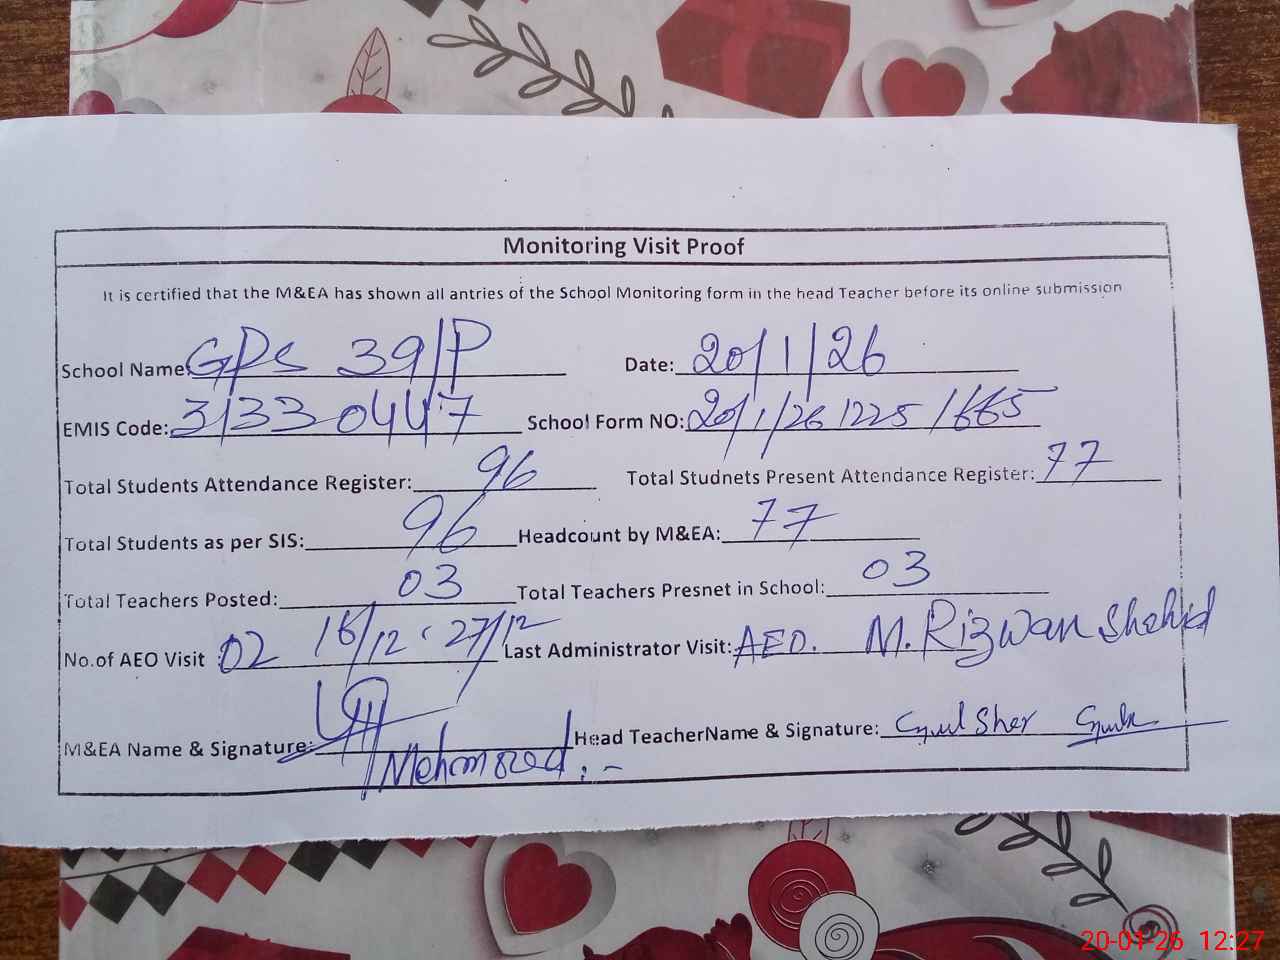 Monitoring Visit Proof
It is certified that the M&EA has shown all antries of the School Monitoring form in the head Teacher before its online submission
School Name: GPS 39/P Date: 20/1/26
EMIS Code: 31330447 School Form NO: 20/1/26 1225 /665
Total Students Attendance Register: 96 Total Studnets Present Attendance Register: 77
Total Students as per SIS: 96 Headcount by M&EA: 77
Total Teachers Posted: 03 Total Teachers Presnet in School: 03
No.of AEO Visit 02 16/12, 27/12 Last Administrator Visit: AEO. M.Rizwan Shahid
M&EA Name & Signature: Mehmood
Head TeacherName & Signature: Gul Sher
20-01-26 12:27